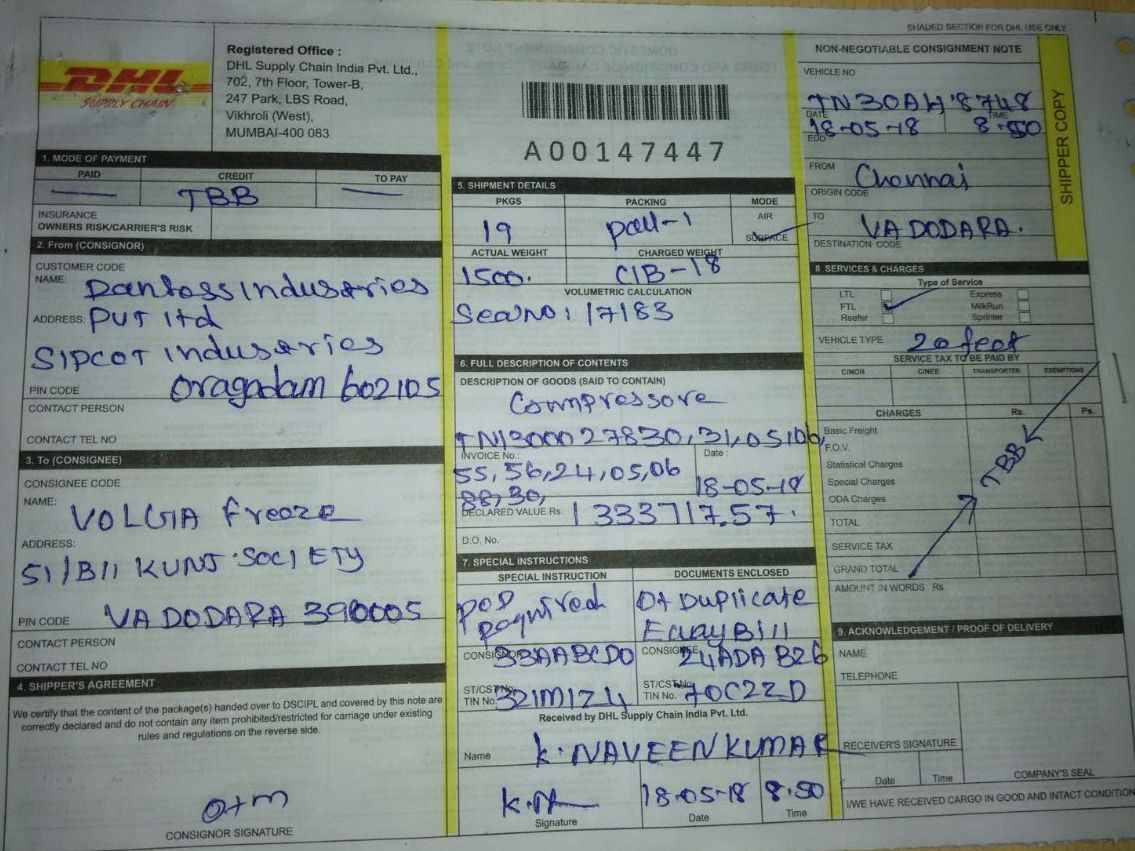 SHADED SECTION FOR DHL USE ONLY
DHL
SUPPLY CHAIN
Registered Office :
DHL Supply Chain India Pvt. Ltd.,
702, 7th Floor, Tower-B,
247 Park, LBS Road,
Vikhroli (West),
MUMBAI-400 083
A00147447
NON-NEGOTIABLE CONSIGNMENT NOTE
VEHICLE NO
TN30AH 8748
DATE TIME
18-05-18 8-50
EDD
FROM Chennai
ORIGIN CODE
TO VADODARA.
DESTINATION CODE
SHIPPER COPY
1. MODE OF PAYMENT
PAID CREDIT TO PAY
TBB
INSURANCE
OWNERS RISK/CARRIER'S RISK
2. From (CONSIGNOR)
CUSTOMER CODE
NAME: Danfoss Industries
ADDRESS: PVT ltd
SIPCOT Industries
PIN CODE Oragadam 602105
CONTACT PERSON
CONTACT TEL NO
3. To (CONSIGNEE)
CONSIGNEE CODE
NAME: VOLGA Freeze
ADDRESS:
51/B11 KUNJ SOCIETY
PIN CODE VADODARA 390005
CONTACT PERSON
CONTACT TEL NO
4. SHIPPER'S AGREEMENT
We certify that the content of the package(s) handed over to DSCIPL and covered by this note are
correctly declared and do not contain any item prohibited/restricted for carriage under existing
rules and regulations on the reverse side.
CONSIGNOR SIGNATURE
5. SHIPMENT DETAILS
PKGS PACKING MODE
19 AIR
SURFACE
ACTUAL WEIGHT CHARGED WEIGHT
1500. CIB-18
VOLUMETRIC CALCULATION
Seal no: 17183
6. FULL DESCRIPTION OF CONTENTS
DESCRIPTION OF GOODS (SAID TO CONTAIN)
Compressore
TN1300027830,31,05,06,
INVOICE No.: Date :
55,56,24,05,06 18-05-18
88,30,
DECLARED VALUE Rs. 1333717.57.
D.O. No.
7. SPECIAL INSTRUCTIONS
SPECIAL INSTRUCTION DOCUMENTS ENCLOSED
POD Duplicate
Required Eway Bill
CONSIGNOR 33AABCD0 CONSIGNEE 24ADAB26
ST/CST No. ST/CST No.
TIN No. 321M1Z4 TIN No. 70C2ZD
Received by DHL Supply Chain India Pvt. Ltd.
Name K. NAVEEN KUMAR
18-05-18 8-50
Signature Date Time
8 SERVICES & CHARGES
Type of Service
LTL Express
FTL MilkRun
Reefer Sprinter
VEHICLE TYPE 20 feet
SERVICE TAX TO BE PAID BY
C/NOR C/NEE TRANSPORTER EXEMPTIONS
CHARGES Rs. Ps.
Basic Freight
F.O.V.
Statistical Charges
Special Charges
ODA Charges
TBB
TOTAL
SERVICE TAX
GRAND TOTAL
AMOUNT IN WORDS Rs
9. ACKNOWLEDGEMENT / PROOF OF DELIVERY
NAME
TELEPHONE
RECEIVER'S SIGNATURE
Date Time COMPANY'S SEAL
I/WE HAVE RECEIVED CARGO IN GOOD AND INTACT CONDITION